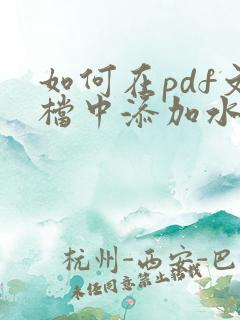 如何在pdf文
檔中添加水
杭州-西安-巴
未经同意禁止转载